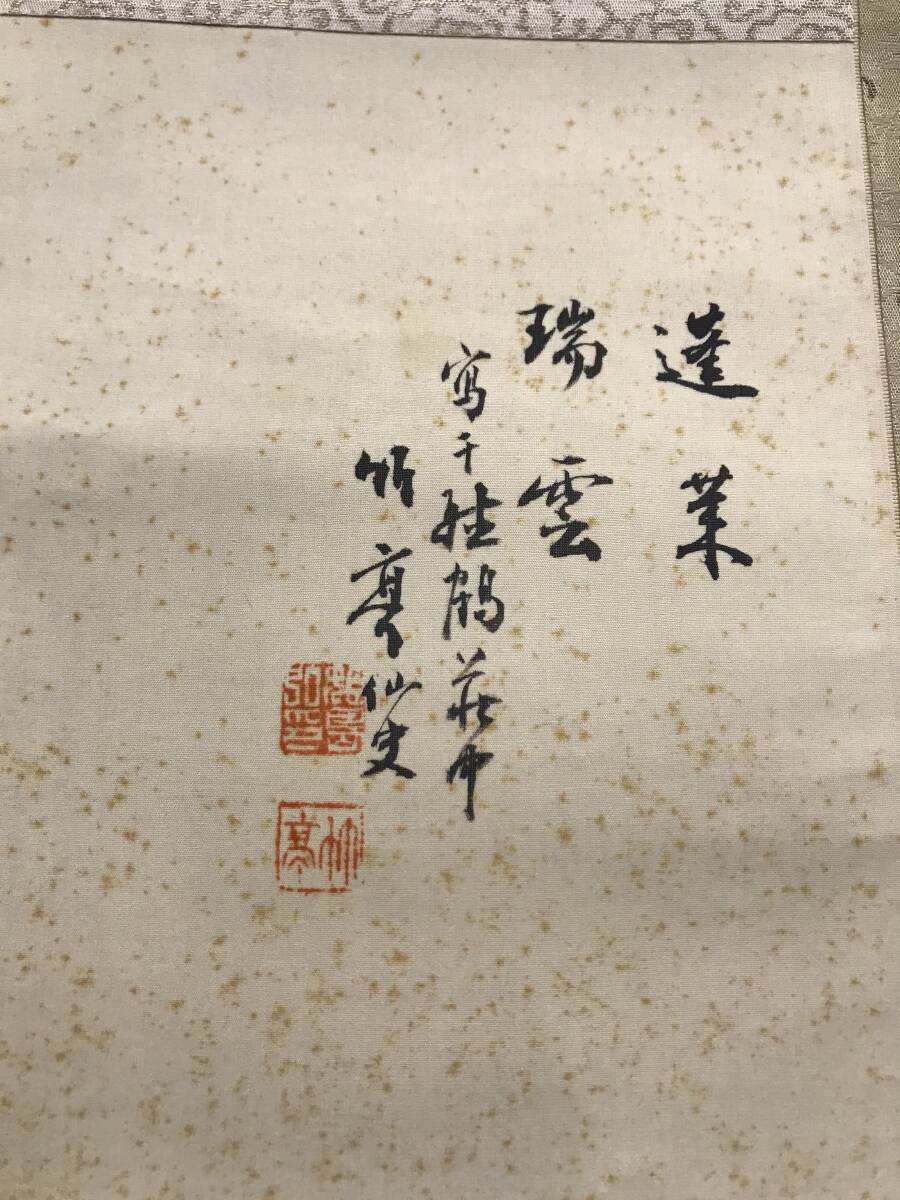 蓬莱
瑞雲
寫于鶴荘中
竹亭仙史
竹亭